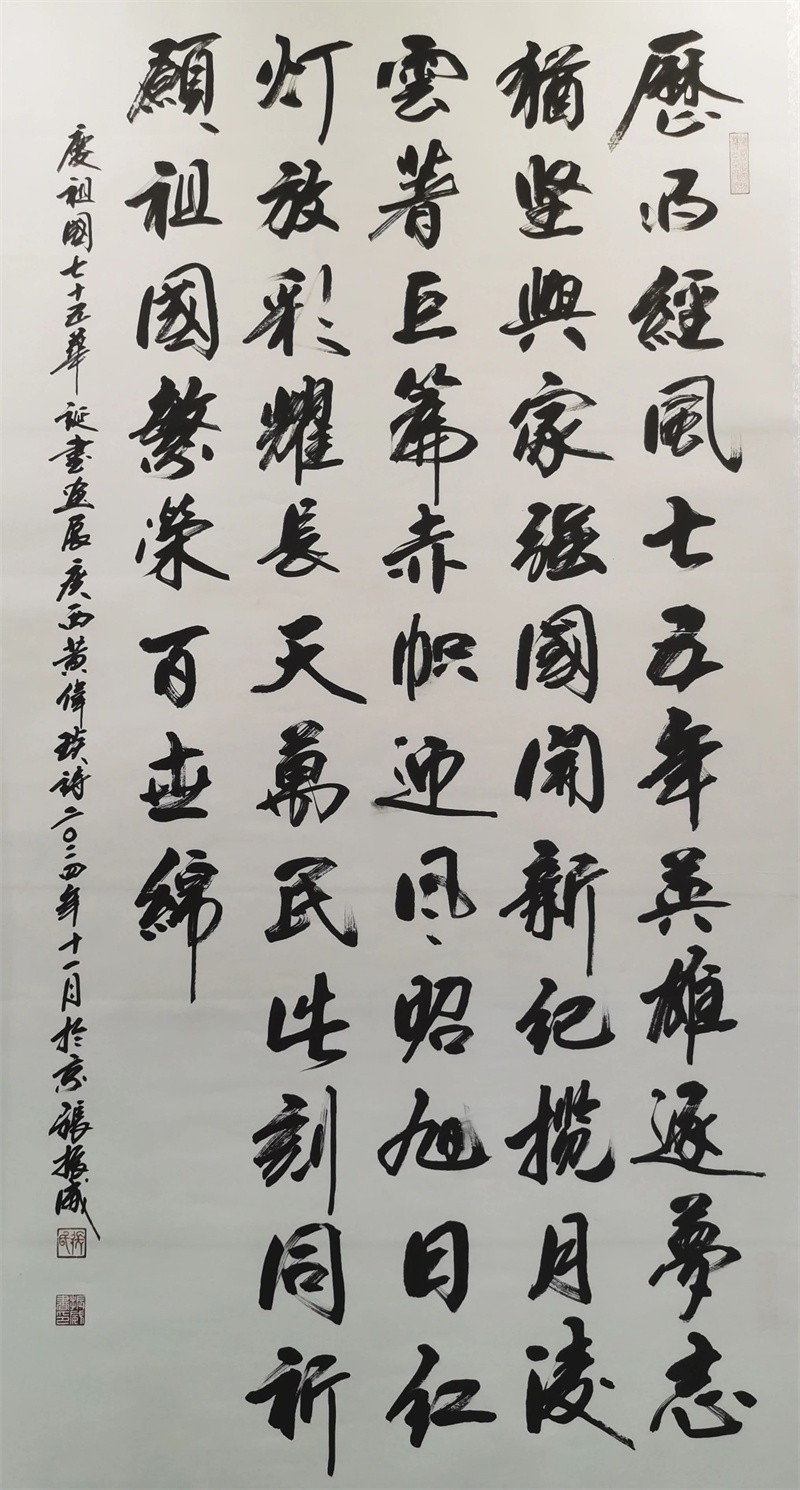 歷雨經風七五年英雄逐夢志
猶坚興家强國開新纪揽月淩
雲著巨篇赤帜迎风昭旭日红
灯放彩耀長天萬民此刻同祈
願祖國繁榮百世綿
慶祖國七十五華誕書画展廣西黄偉琰詩二〇二四年十一月於京張振威